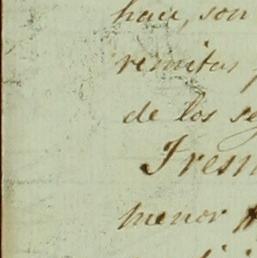 hace, son
remitas
de los se
Fresn
menor